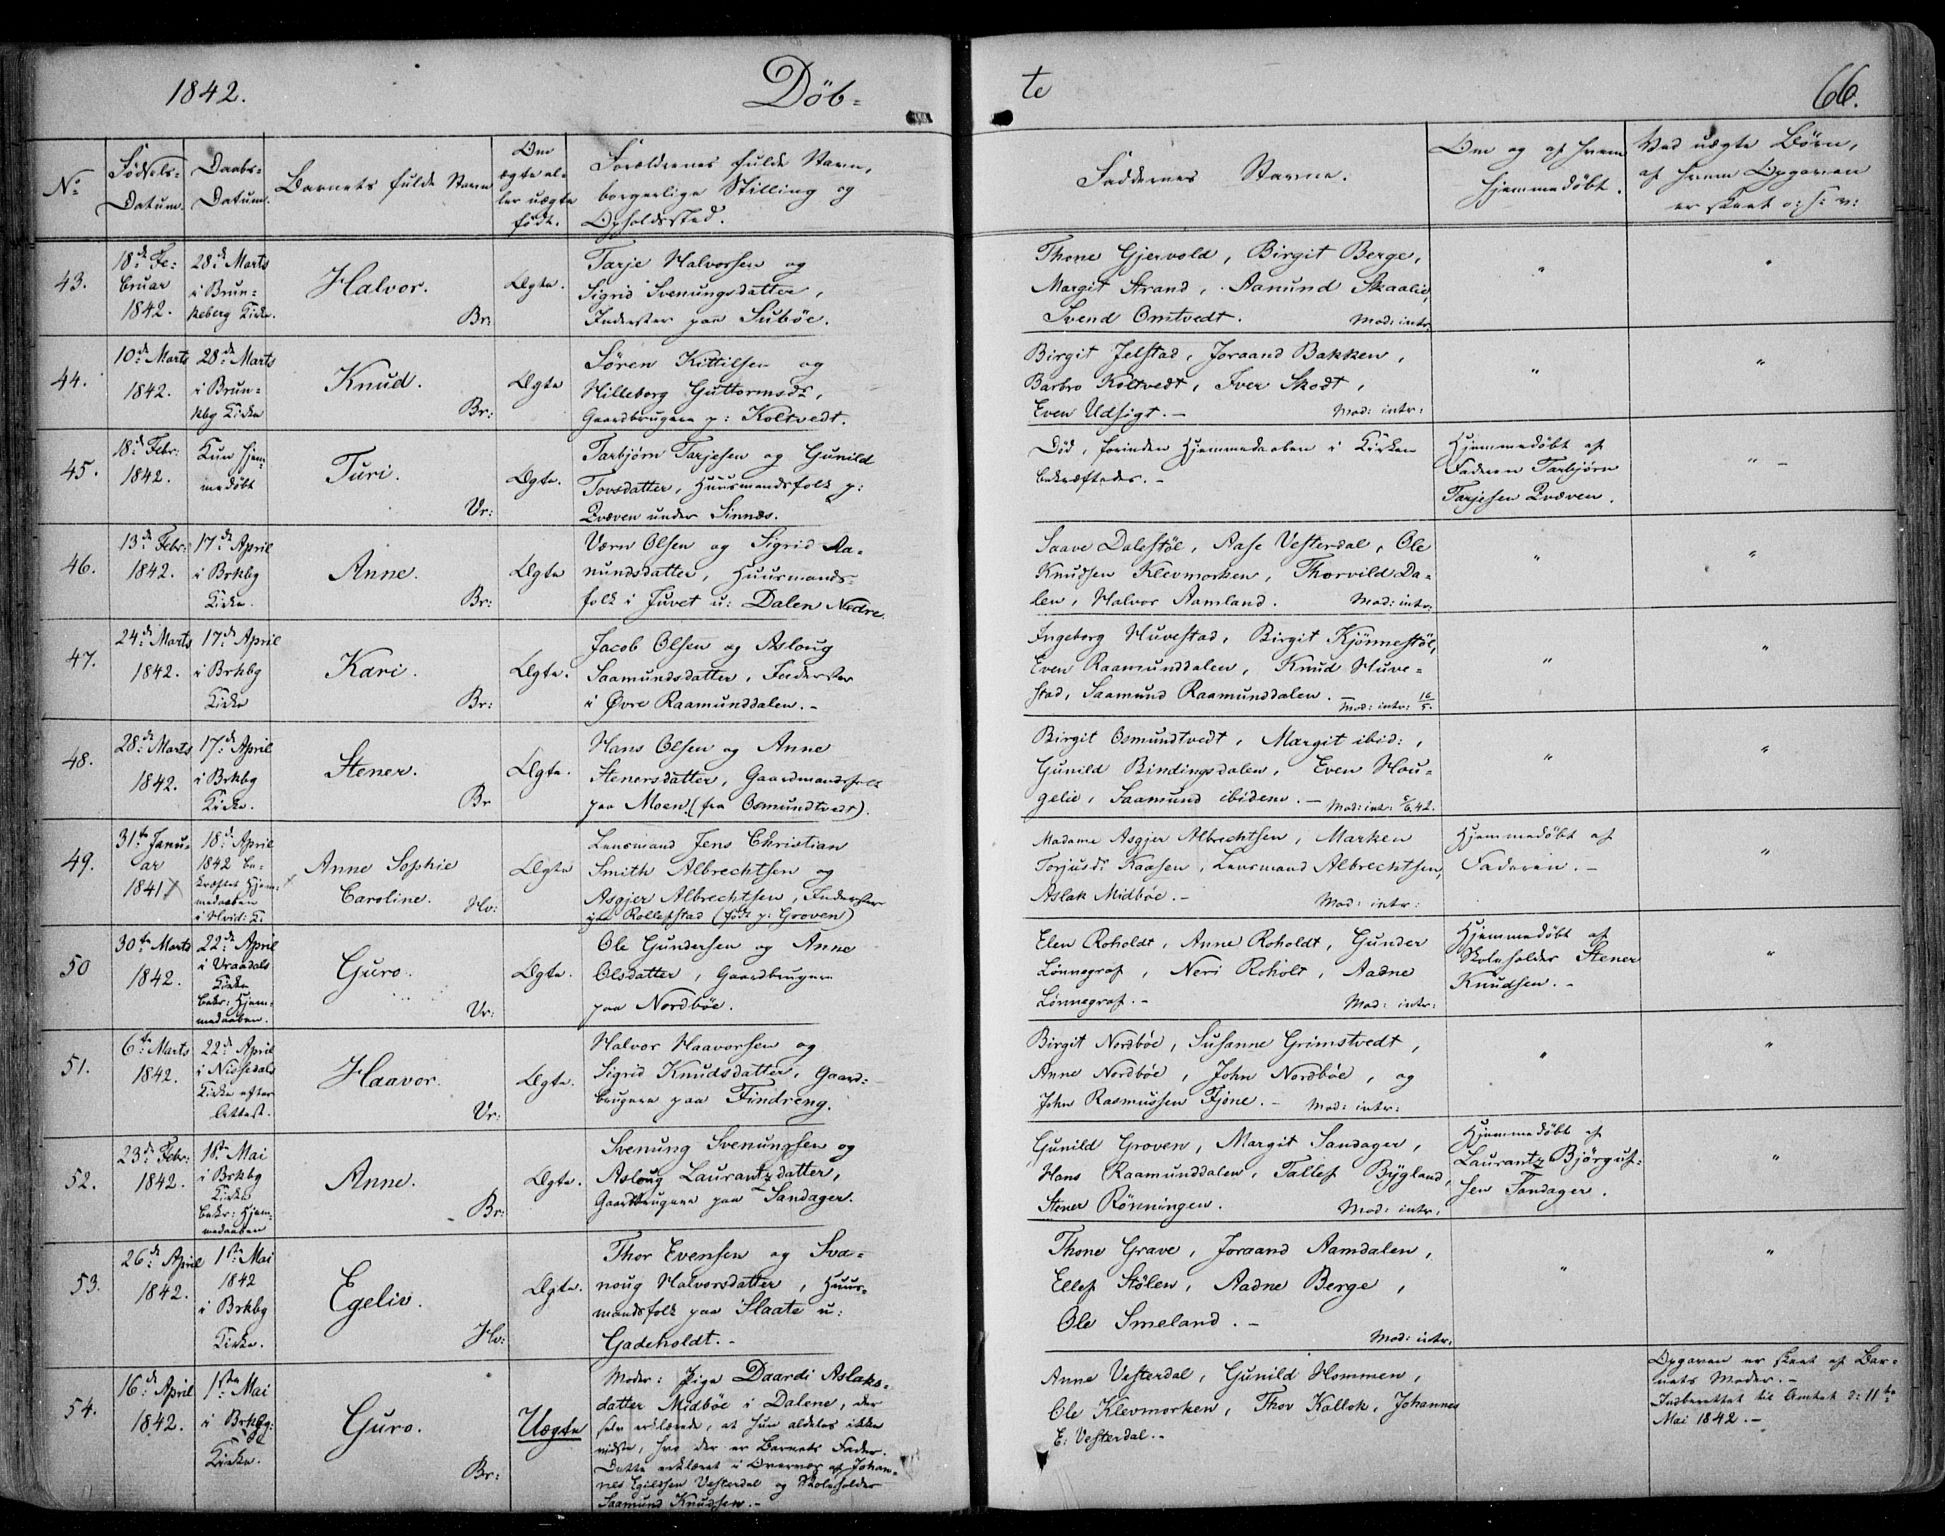 1842.
Döb-
te
66.
No
Fødsels-
Datum.
Daabs-
Datum.
Barnets fulde Navn
Om
ægte el-
ler uægte
født.
Forældrenes fulde Navn,
borgerlige Stilling og
Opholdssted.
Faddernes Navne.
Om og af hvem
hjemmedøbt.
Ved uægte Børn,
af hvem Opgaven
er skeet o: s: v:
43.
18de Fe-
bruar
1842.
28de Marts
i Brun-
keberg Kirke.
Halvor.
Br:
Ægte.
Tarje Halvorsen og
Sigrid Svenungsdatter,
Inderster paa Subøe.
Thone Gjervold, Birgit Berge,
Margit Strand, Aanund Skaalie,
Svend Omtvedt.
Mod: intr:
"
"
44.
10de Marts
1842.
28de Marts
i Brun-
kbg Kirke
Knud.
Br:
Ægte
Søren Kittilsen og
Hilleborg Guttormsdr,
Gaardbrugere p: Koltvedt.
Birgit Jelstad, Joraand Bakken,
Barbro Koltvedt, Iver Skodt,
Even Udsigt. -
Mod: intr:
"
"
45.
18de Febr:
1842.
Kun hjem-
medøbt
Turi.
Vr:
Ægte.
Tarbjørn Tarjesen og Gunild
Tovsdatter, Huusmandsfolk p:
Qvæven under Sinnæs.
Død, forinden Hjemmedaaben i Kirken
bekræftedes. -
Hjemmedøbt af
Faderen Tarbjørn
Tarjesen Qvæven.
" -
46.
13de Febr:
1842.
17de April
i Brkbg
Kirke.
Anne.
Br:
Ægte
Værn Olsen og Sigrid Aa-
nundsdatter, Huusmands-
folk i Juvet u: Dalen Nedre.
Saave Dalestöl, Aase Vesterdal, Ole
Knudsen Klevmorken, Thorvild Da-
len, Halvor Aamland.
Mod: intr:
"
"
47.
24de Marts
1842.
17de April
i Brkbg
Kirke
Kari.
Br:
Ægte.
Jacob Olsen og Asloug
Saamundsdatter, Inderster
i Øvre Raamunddalen. -
Ingeborg Huvestad, Birgit Kjönnestöl,
Even Raamunddalen, Knud Huve-
stad, Saamund Raamunddalen. -
Mod: intr: 16/5.
"
"
48.
28de Marts
1842.
17de April
i Brkbg
Kirke.
Stener.
Br
Ægte.
Hans Olsen og Anne
Stenersdatter, Gaardmandsfolk
paa Moen. (fra Osmundtvedt).
Birgit Osmundtvedt, Margit ibid:,
Gunild Bindingsdalen, Even Hou-
gelie, Saamund ibidem. -
"
"
49.
31te Janu-
ar
1841
18de April
1842 be-
kræftet Hjem-
medaaben
i Hvid: K.
Anne Sophie
Caroline.
Hv:
Ægte
Lensmand Jens Christian
Smith Albrechtsen og
Asgjer Albrechtsen, Inderster
paa Rollefstad (født p: Groven)
Madame Asgjer Albrechtsen, Marken
Torjusdr Kaasen, Lensmand Albrechtsen,
Aslak Midbøe. -
Mod: intr:
Hjemmedøbt af
Faderen. -
"
50
30te Marts
1842.
22de April
i Vraadals
Kirke
bekr: Hjem-
medaaben.
Guro.
Vr:
Ægte.
Ole Gundersen og Anne
Olsdatter, Gaardbrugere
paa Nordbøe.
Elen Roholdt, Anne Roholdt, Gunder
Lönnegraf, Neri Roholt, Aadne
Lönnegraf. -
Mod: intr:
Hjemmedøbt af
Skoleholder Stener
Knudsen. -
"
51.
6te Marts
1842.
22de April
i Nissedals
Kirke efter
Attest.
Haavor.
Vr:
Ægte.
Halvor Haavorsen og
Sigrid Knudsdatter, Gaard-
brugere paa Findreng.
Birgit Nordbøe, Susanne Grimstvedt,
Anne Nordbøe, John Nordbøe, og
John Rasmussen Fjone. -
Mod: intr:
"
"
52.
23de Febr:
1842.
1ste Mai
i Brkbg
Kirke
bekr: Hjem-
medaaben
Anne.
Br:
Ægte.
Svenung Svenungsen og
Asloug Laurantzdatter,
Gaardbrugere paa Sandager.
Gunild Groven, Margit Sandager,
Hans Raamunddalen, Tallef Bygland,
Stener Rönningen.
Mod: intr:
Hjemmedøbt af
Laurantz Björguf-
sen Sandager.
"
53.
26de April
1842.
1ste Mai
1842
i Brkbg
Kirke.
Egeliv.
Hv:
Ægte.
Thor Evensen og Sva-
noug Halvorsdatter, Huus-
mandsfolk paa Slaate u:
Gadeholdt. -
Thone Grave, Joraand Aamdalen,
Ellef Stölen, Aadne Berge,
Ole Smeland. -
Mod: intr:
"
"
54.
16de April
1842.
1ste Mai
i Brkbg:
Kirke.
Guro.
Br:
Uægte
Moder: Pige Daardi Aslaks-
datter Midbøe i Dalene, der
selv erklærede, at hun aldeles ikke
vidste, hvo der er Barnets Fader.
Dette erklæret i Overvær af Johan-
nes Egilssen Vesterdal og Skoleholder
Saamund Knudsen. -
Anne Vesterdal, Gunild Hommen,
Ole Klevmorken, Thov Kallok, Johannes
E: Vesterdal. -
Opgaven er skeet af Bar-
nets Moder. -
Indberettet til Amtet d: 11te
Mai 1842. -